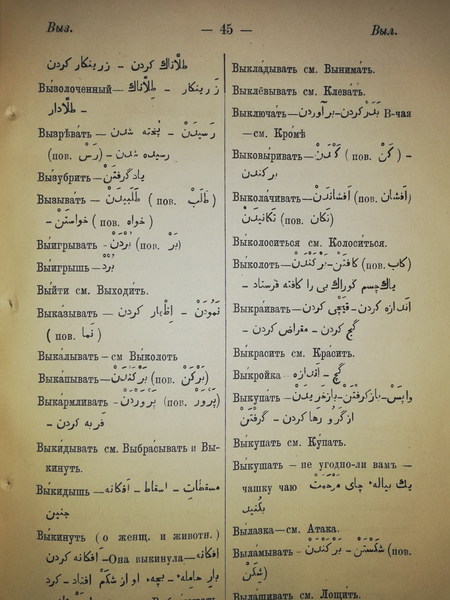 Выз.
— 45 —
Выл.
طلّاناك كردن - زرینكار كردن
Вызолоченный— زرینكار - طلّاناك
- طلّادار
Вызрѣва́ть— رَسیدَنْ - پُخته شدن -
رسیده شدن - (пов. رَسْ)
Вы́зубрить— یادگِرِفتَنْ
Вызыва́ть— طَلَبیدَنْ (пов. طَلَبْ)
خواستَنْ - (пов. خواه)
Выи́грывать - بُرْدَنْ (пов. بَرْ)
Вы́игрышь— بُرْدْ
Вы́йти см. Выходи́ть.
Выка́зывать— نَمُودَنْ - اِظْهار كردن
(пов. نَما)
Выка́лывать—см Вы́колоть
Выка́пывать— بَرْكَنْدَنْ (пов. بَرْكَنْ)
Выка́рмливать— پَروَرْدَنْ (пов. پَروَرْ)
- فربه كردن
Выки́дывать см. Выбра́сывать и Вы-
кинуть.
Вы́кидышь— مسقطات - اسقاط - افكانه
جنین
Вы́кинуть (о женщ. и животн.)
افكانه كردن —Она выкинула— افكانه
بار حامله - بچهء او از شكَمْ افتاد - كرد
Выкла́дывать см. Вынима́ть.
Выклёвывать см. Клева́ть.
Выключа́ть— بَدَر كردن - برآوردن В-чая
—см. Кромѣ
Выковы́ривать— كَنْدَنْ (пов. كَنْ) -
بركندن
Выкола́чивать— اَفشانْدَنْ (пов. اَفشان)
تَكانیدَنْ (пов. تكان)
Вы́колоситься см. Колоси́ться.
Вы́колоть— كافتَنْ - بَرْكَنْدَنْ (пов. كاب)
یاك چسم گوراك بی را كافته فرستاد -
Выкра́ивать— اَندازه كردن - قَیْچی كردن
گچ كردن - مقراض كردن -
Вы́красить см. Кра́сить.
Вы́кройка گچ - اندازه
Выкупа́ть— واپَسْ - بازگرفتَنْ - بازخریدَنْ
ازگرو رها كردن - گرفْتَنْ
Вы́купать см. Купа́ть.
Вы́кушать - не угодно-ли вамъ —
чашку чаю یك پیاله چای مَرْحَمَتْ
بكُنید
Вы́лазка—см. Атака.
Выла́мывать— شِكَسْتَنْ - بَرْكَنْدَنْ (пов.
شِكَنْ)
Выла́щивать см. Лощи́ть.